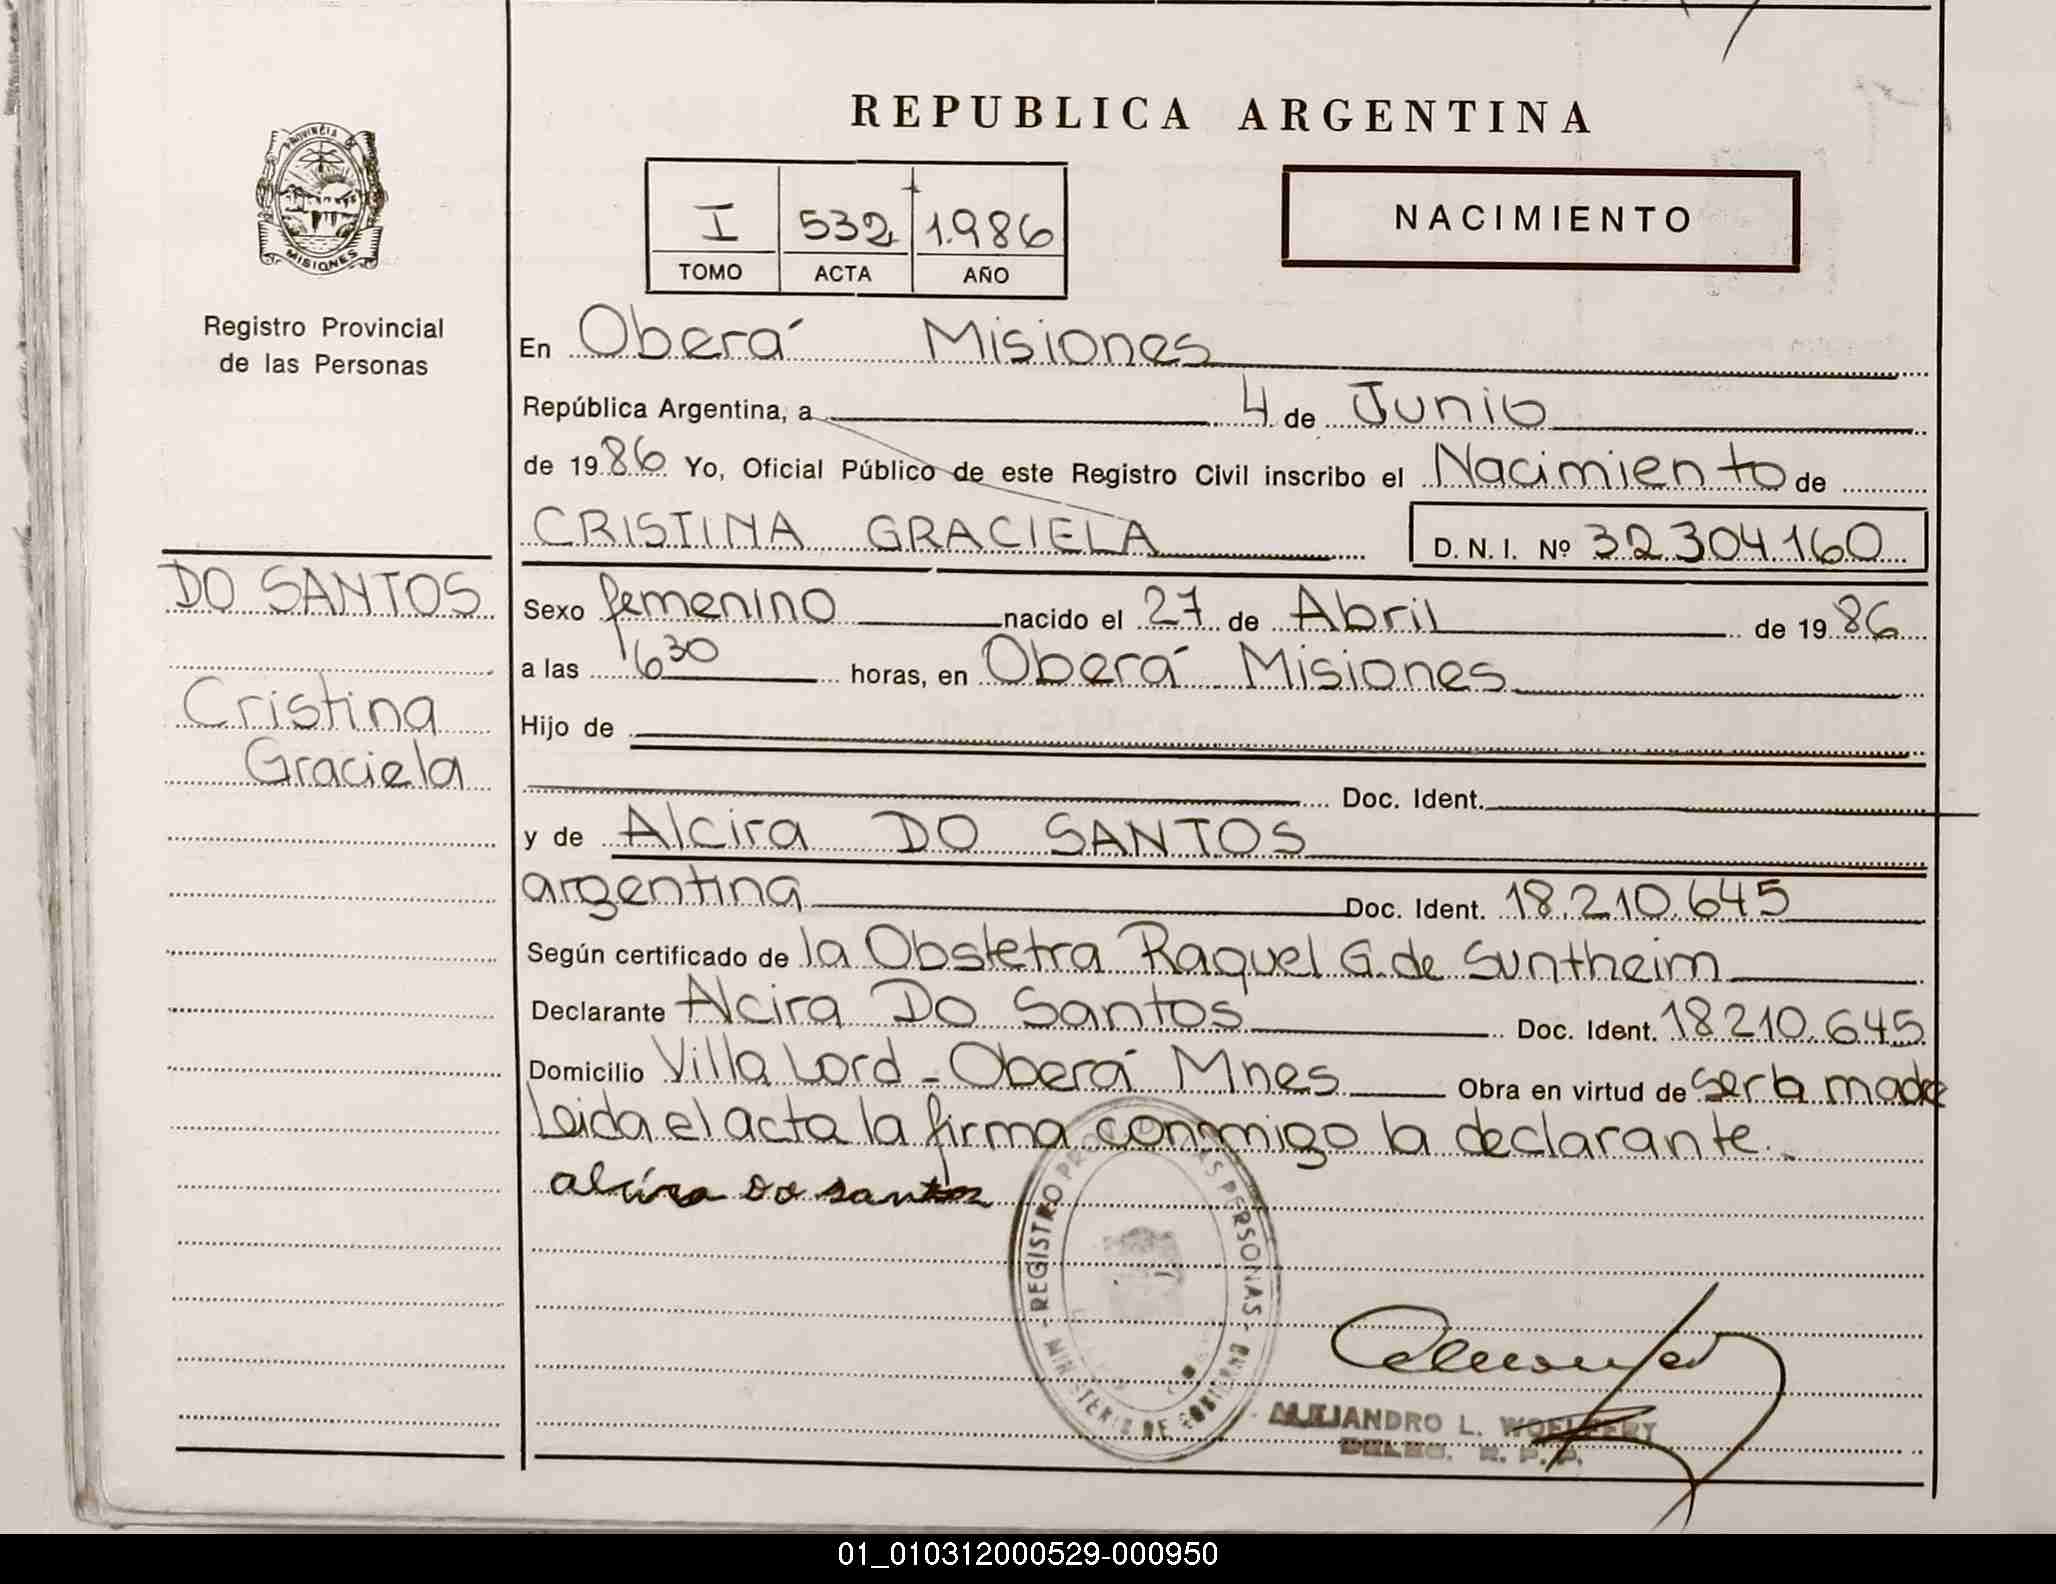 REPUBLICA ARGENTINA
PROVINCIA DE
MISIONES
Registro Provincial
de las Personas
I 532 1.986
TOMO ACTA AÑO
NACIMIENTO
En Oberá Misiones
República Argentina, a 4 de Junio
de 1986 Yo, Oficial Público de este Registro Civil inscribo el Nacimiento de
CRISTINA GRACIELA D. N. I. Nº 32.304.160
DO SANTOS
Cristina
Graciela
Sexo femenino nacido el 27 de Abril de 1986
a las 16 30 horas, en Oberá Misiones
Hijo de
Doc. Ident.
y de Alcira DO SANTOS
argentina Doc. Ident. 18.210.645
Según certificado de la Obstetra Raquel G. de Suntheim
Declarante Alcira Do Santos Doc. Ident. 18.210.645
Domicilio Villa Lord - Oberá Mnes Obra en virtud de ser la madre
Leida el acta la firma conmmigo la declarante.-
alcira do santos
REGISTRO PROV. DE LAS PERSONAS
MINISTERIO DE GOBIERNO
ALEJANDRO L.
DELEG. R. P. P.
01_010312000529-000950